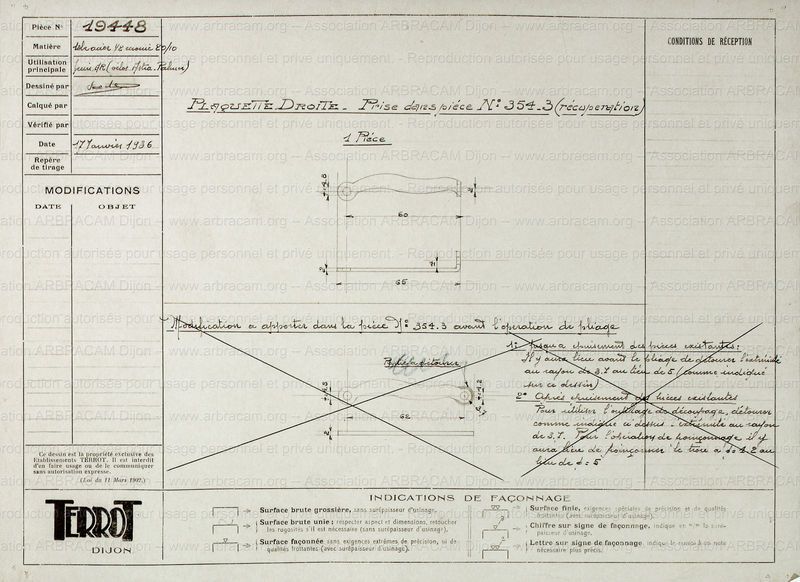 Pièce N° 19448
Matière
Utilisation
principale
Dessiné par
Calqué par
Vérifié par
Date 17 Janvier 1936
Repère
de tirage
MODIFICATIONS
DATE OBJET
CONDITIONS DE RÉCEPTION
PLAQUETTE DROITE - Prise dans pièce N° 354-3 (récupération)
1 Pièce
60
65
Modification à apporter dans la pièce N° 354.3 avant l'opération de pliage
62
1° Jusqu'à épuisement des pièces existantes:
Il y aura lieu avant le pliage de détourer l'extrémité
au rayon de 3.7 au lieu de 5 (comme indiqué
sur ce dessin)
2° Après épuisement des pièces existantes
Pour utiliser l'outillage de découpage, détourer
comme indiqué ci dessus - extrémité au rayon
de 3.7. Pour l'opération de poinçonnage il y
aura lieu de poinçonner le trou à 4.2 au
lieu de 5
Ce dessin est la propriété exclusive des
Etablissements TERROT. Il est interdit
d'en faire usage ou de le communiquer
sans autorisation expresse.
(Loi du 11 Mars 1902.)
TERROT
DIJON
INDICATIONS DE FAÇONNAGE
Surface brute grossière, sans surépaisseur d'usinage.
Surface brute unie; respecter aspect et dimensions, retoucher
les rugosités s'il est nécessaire (sans surépaisseur d'usinage).
Surface façonnée sans exigences extrêmes de précision, ni de
qualités frottantes (avec surépaisseur d'usinage).
Surface finie, exigences spéciales de précision et de qualités
frottantes (avec surépaisseur d'usinage).
Chiffre sur signe de façonnage, indique en m/m la surépaisseur
d'usinage.
Lettre sur signe de façonnage, indique le numéro de note
nécessaire plus précis.
www.arbracam.org -- Association ARBRACAM Dijon -- www.arbracam.org -- Association ARBRACAM Dijon
Reproduction autorisée pour usage personnel et privé uniquement.